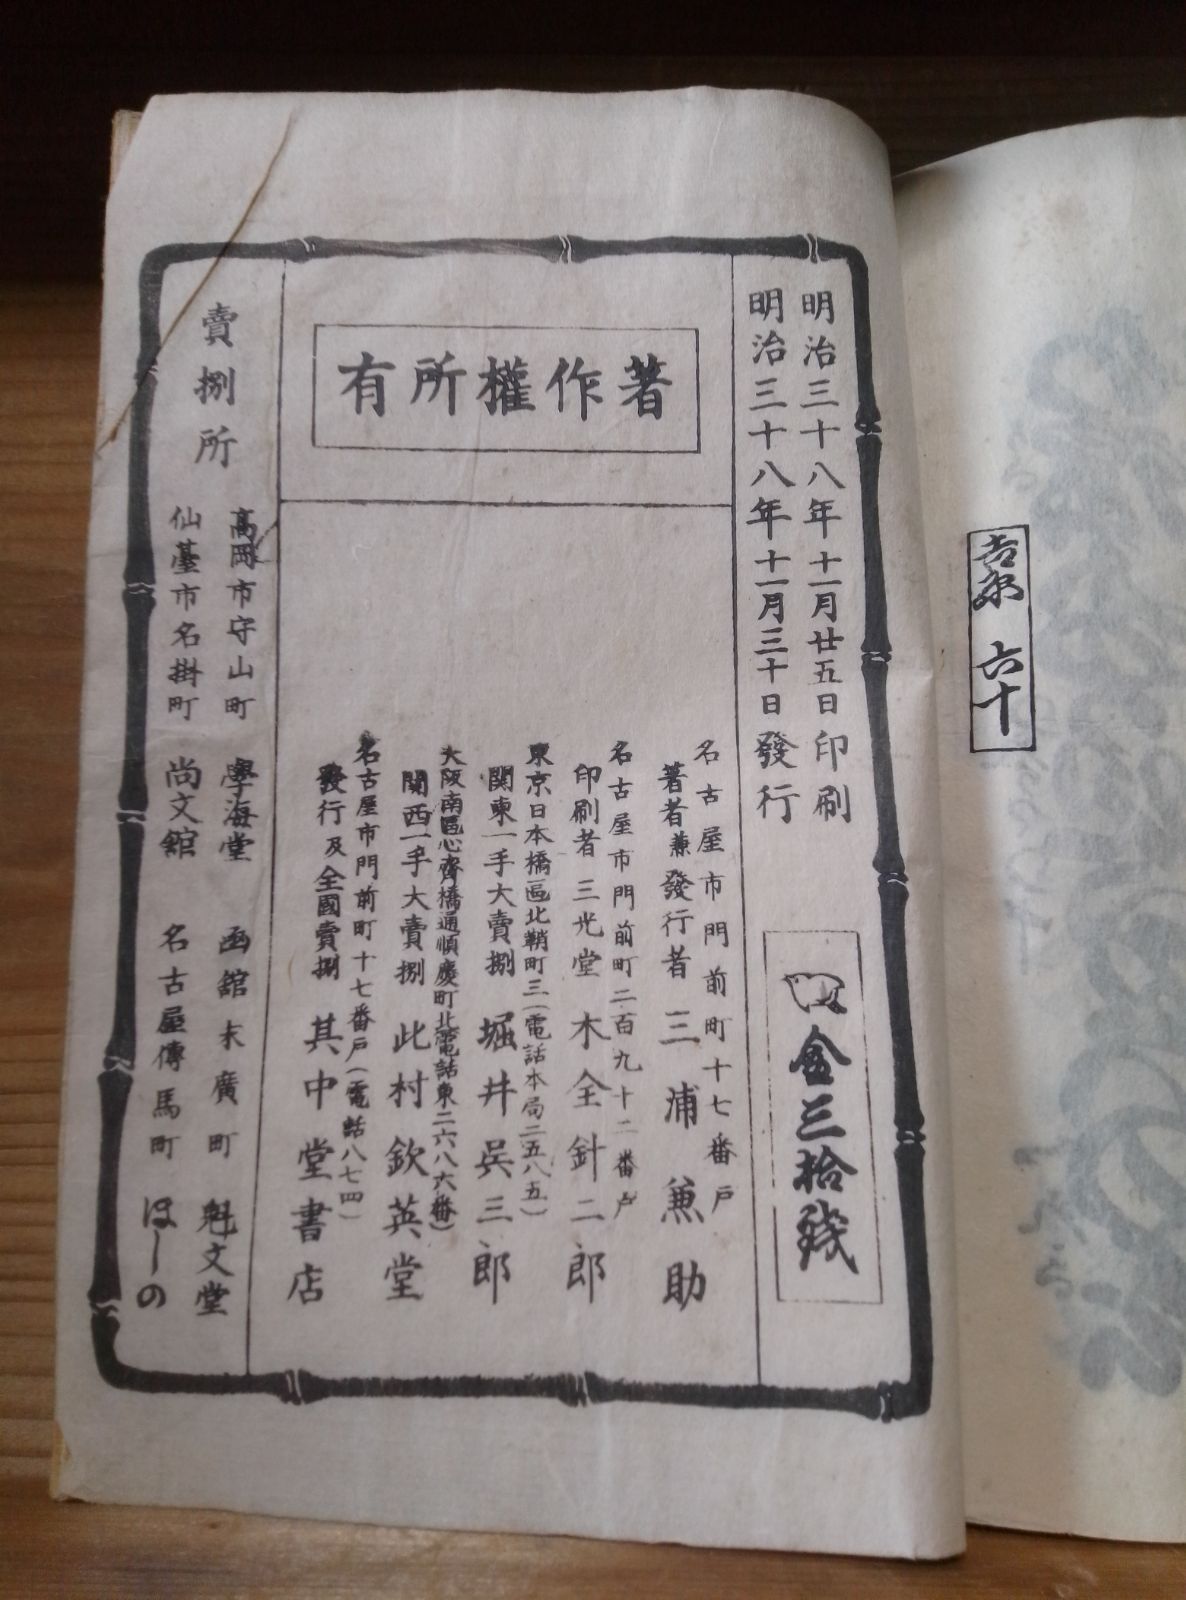 六十
明治三十八年十一月廿五日印刷
明治三十八年十一月三十日發行
金三拾錢
著作權所有
名古屋市門前町十七番戸
著者兼發行者 三浦兼助
名古屋市門前町二百九十二番戸
印刷者 三光堂 木全針二郎
東京日本橋區北鞘町三(電話本局二五八五)
関東一手大賣捌 堀井吳三郎
大阪南區心齋橋通順慶町北(電話東二六八六番)
関西一手大賣捌 此村欽英堂
名古屋市門前町十七番戸(電話八七四)
發行及全國賣捌 其中堂書店
賣捌所
高岡市守山町 學海堂 函館末廣町 魁文堂
仙臺市名掛町 尚文館 名古屋傳馬町 ほしの